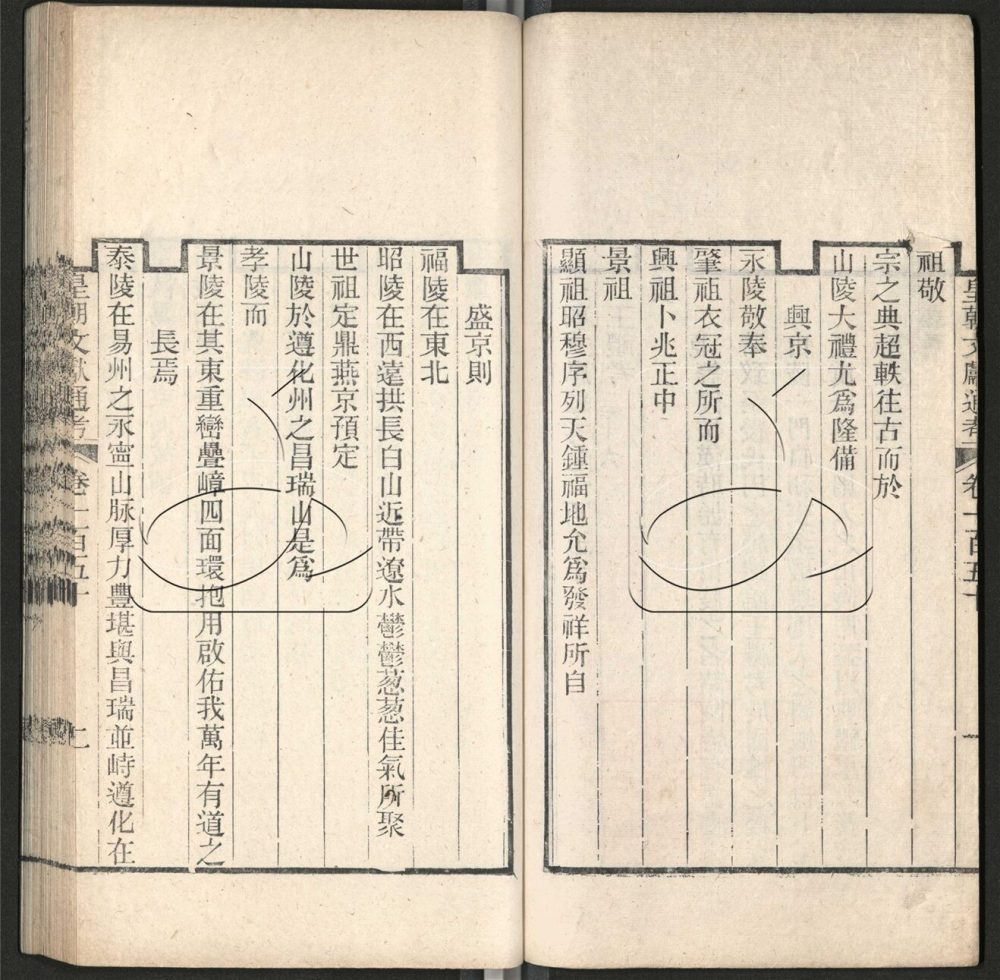 皇朝文獻通考 卷一百五十
祖敬
宗之典超軼往古而於
山陵大禮尤爲隆備
興京
永陵敬奉
肇祖衣冠之所而
興祖卜兆正中
景祖
顯祖昭穆序列天鍾福地允爲發祥所自
盛京則
福陵在東北
昭陵在西遠拱長白山近帶遼水鬱鬱葱葱佳氣所聚
世祖定鼎燕京預定
山陵於遵化州之昌瑞山是爲
孝陵而
景陵在其東重巒疊嶂四面環抱用啟佑我萬年有道之
長焉
泰陵在易州之永寧山脉厚力豐堪與昌瑞並峙遵化在
皇朝文獻通考 卷一百五十 七